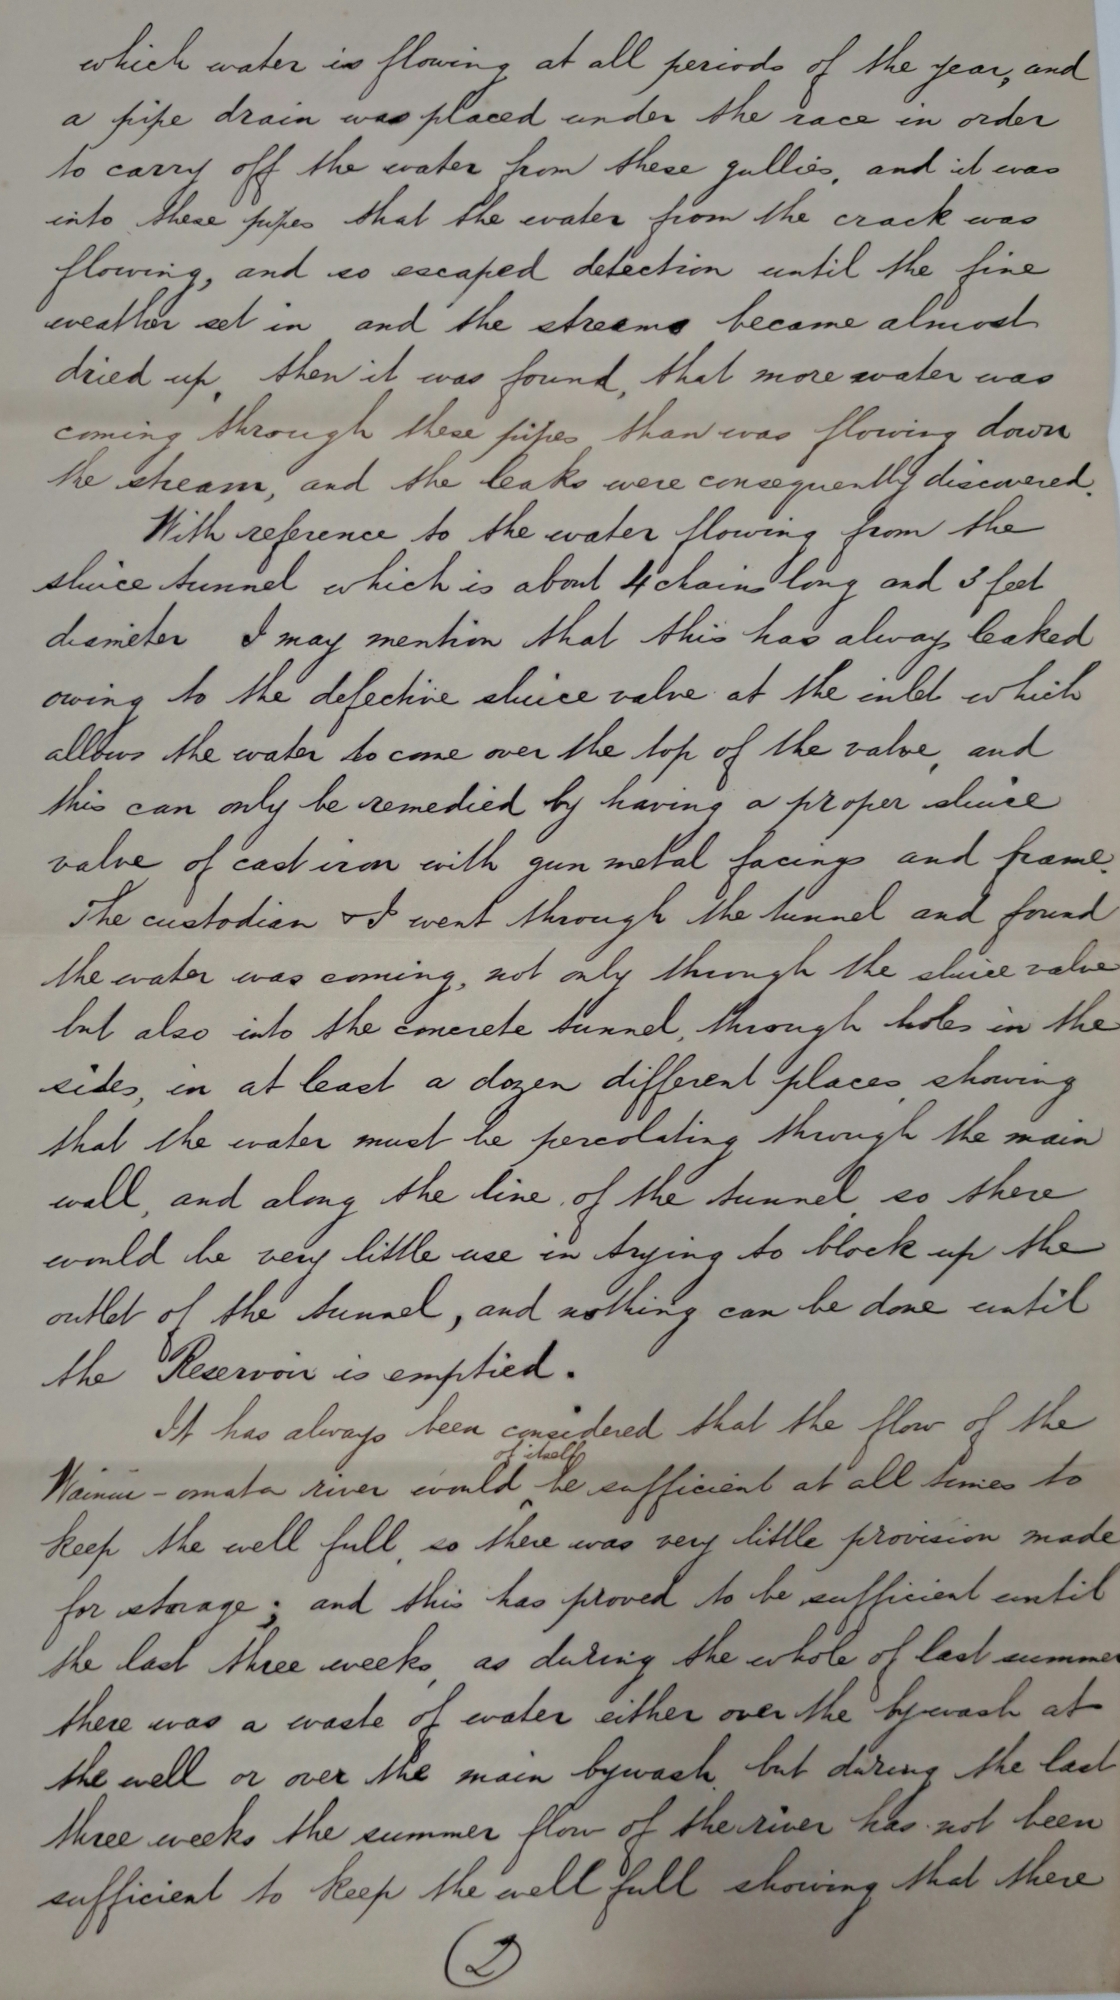 which water is flowing at all periods of the year, and
a pipe drain was placed under the race in order
to carry off the water from these gullies, and it was
into these pipes that the water from the crack was
flowing, and so escaped detection until the fine
weather set in and the streams became almost
dried up, then it was found, that more water was
coming through these pipes than was flowing down
the stream, and the leaks were consequently discovered.
With reference to the water flowing from the
sluice tunnel which is about 4 chains long and 3 feet
diameter I may mention that this has always leaked
owing to the defective sluice valve at the inlet which
allows the water to come over the top of the valve, and
this can only be remedied by having a proper sluice
valve of cast iron with gun metal facings and frame.
The custodian & I went through the tunnel and found
the water was coming, not only through the sluice valve
but also into the concrete tunnel, through holes in the
sides, in at least a dozen different places, showing
that the water must be percolating through the main
wall, and along the line of the tunnel, so there
would be very little use in trying to block up the
outlet of the tunnel, and nothing can be done until
the Reservoir is emptied.
It has always been considered that the flow of the
of itself
Wainui-omata river would be sufficient at all times to
keep the well full, so there was very little provision made
for storage; and this has proved to be sufficient until
the last three weeks, as during the whole of last summer
there was a waste of water either over the bywash at
the well or over the main bywash, but during the last
three weeks the summer flow of the river has not been
sufficient to keep the well full showing that there
2